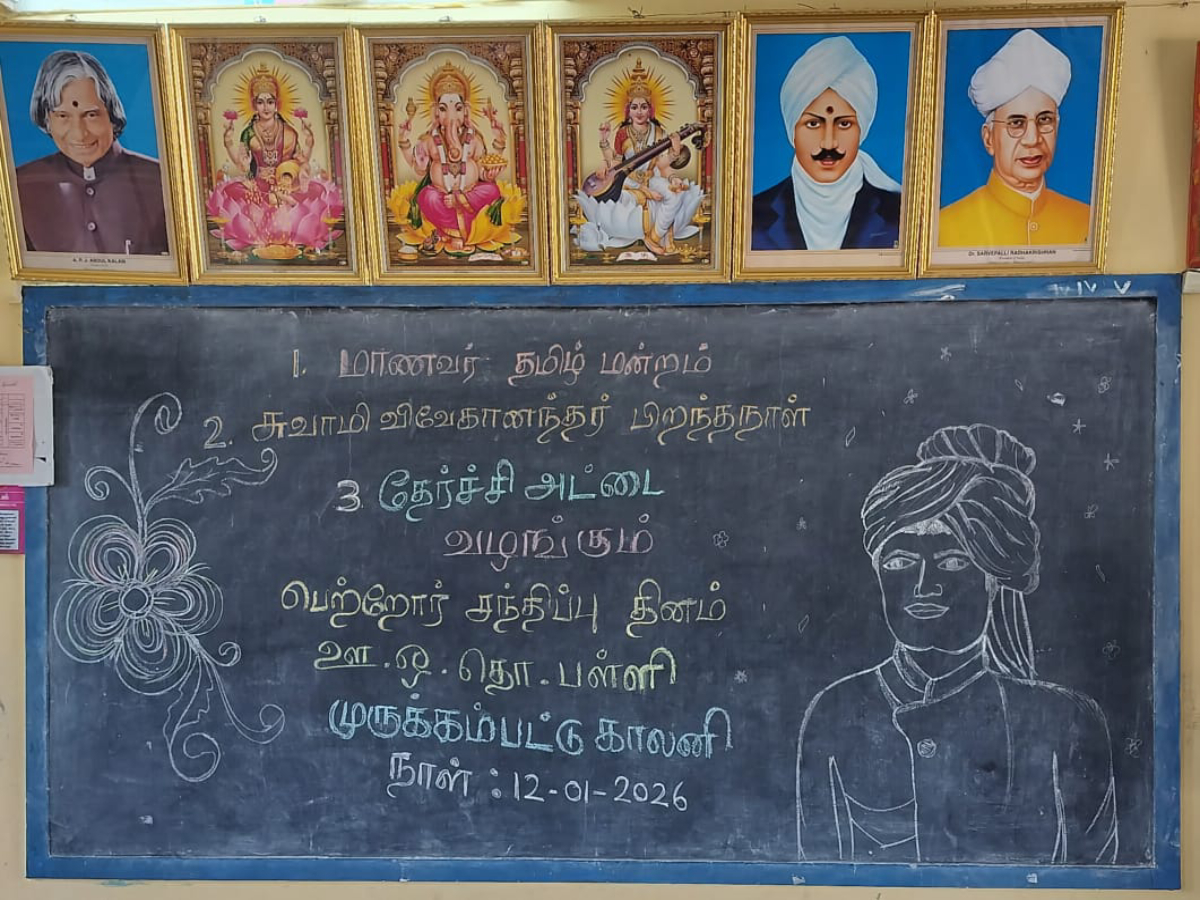 A. P. J. ABDUL KALAM
Dr. SARVEPALLI RADHAKRISHNAN
IV V
1. மாணவர் தமிழ் மன்றம்
2. சுவாமி விவேகானந்தர் பிறந்தநாள்
3 தேர்ச்சி அட்டை
வழங்கும்
பெற்றோர் சந்திப்பு தினம்
ஊ.ஒ.தொ.பள்ளி
முருக்கம்பட்டு காலனி
நாள் : 12-01-2026